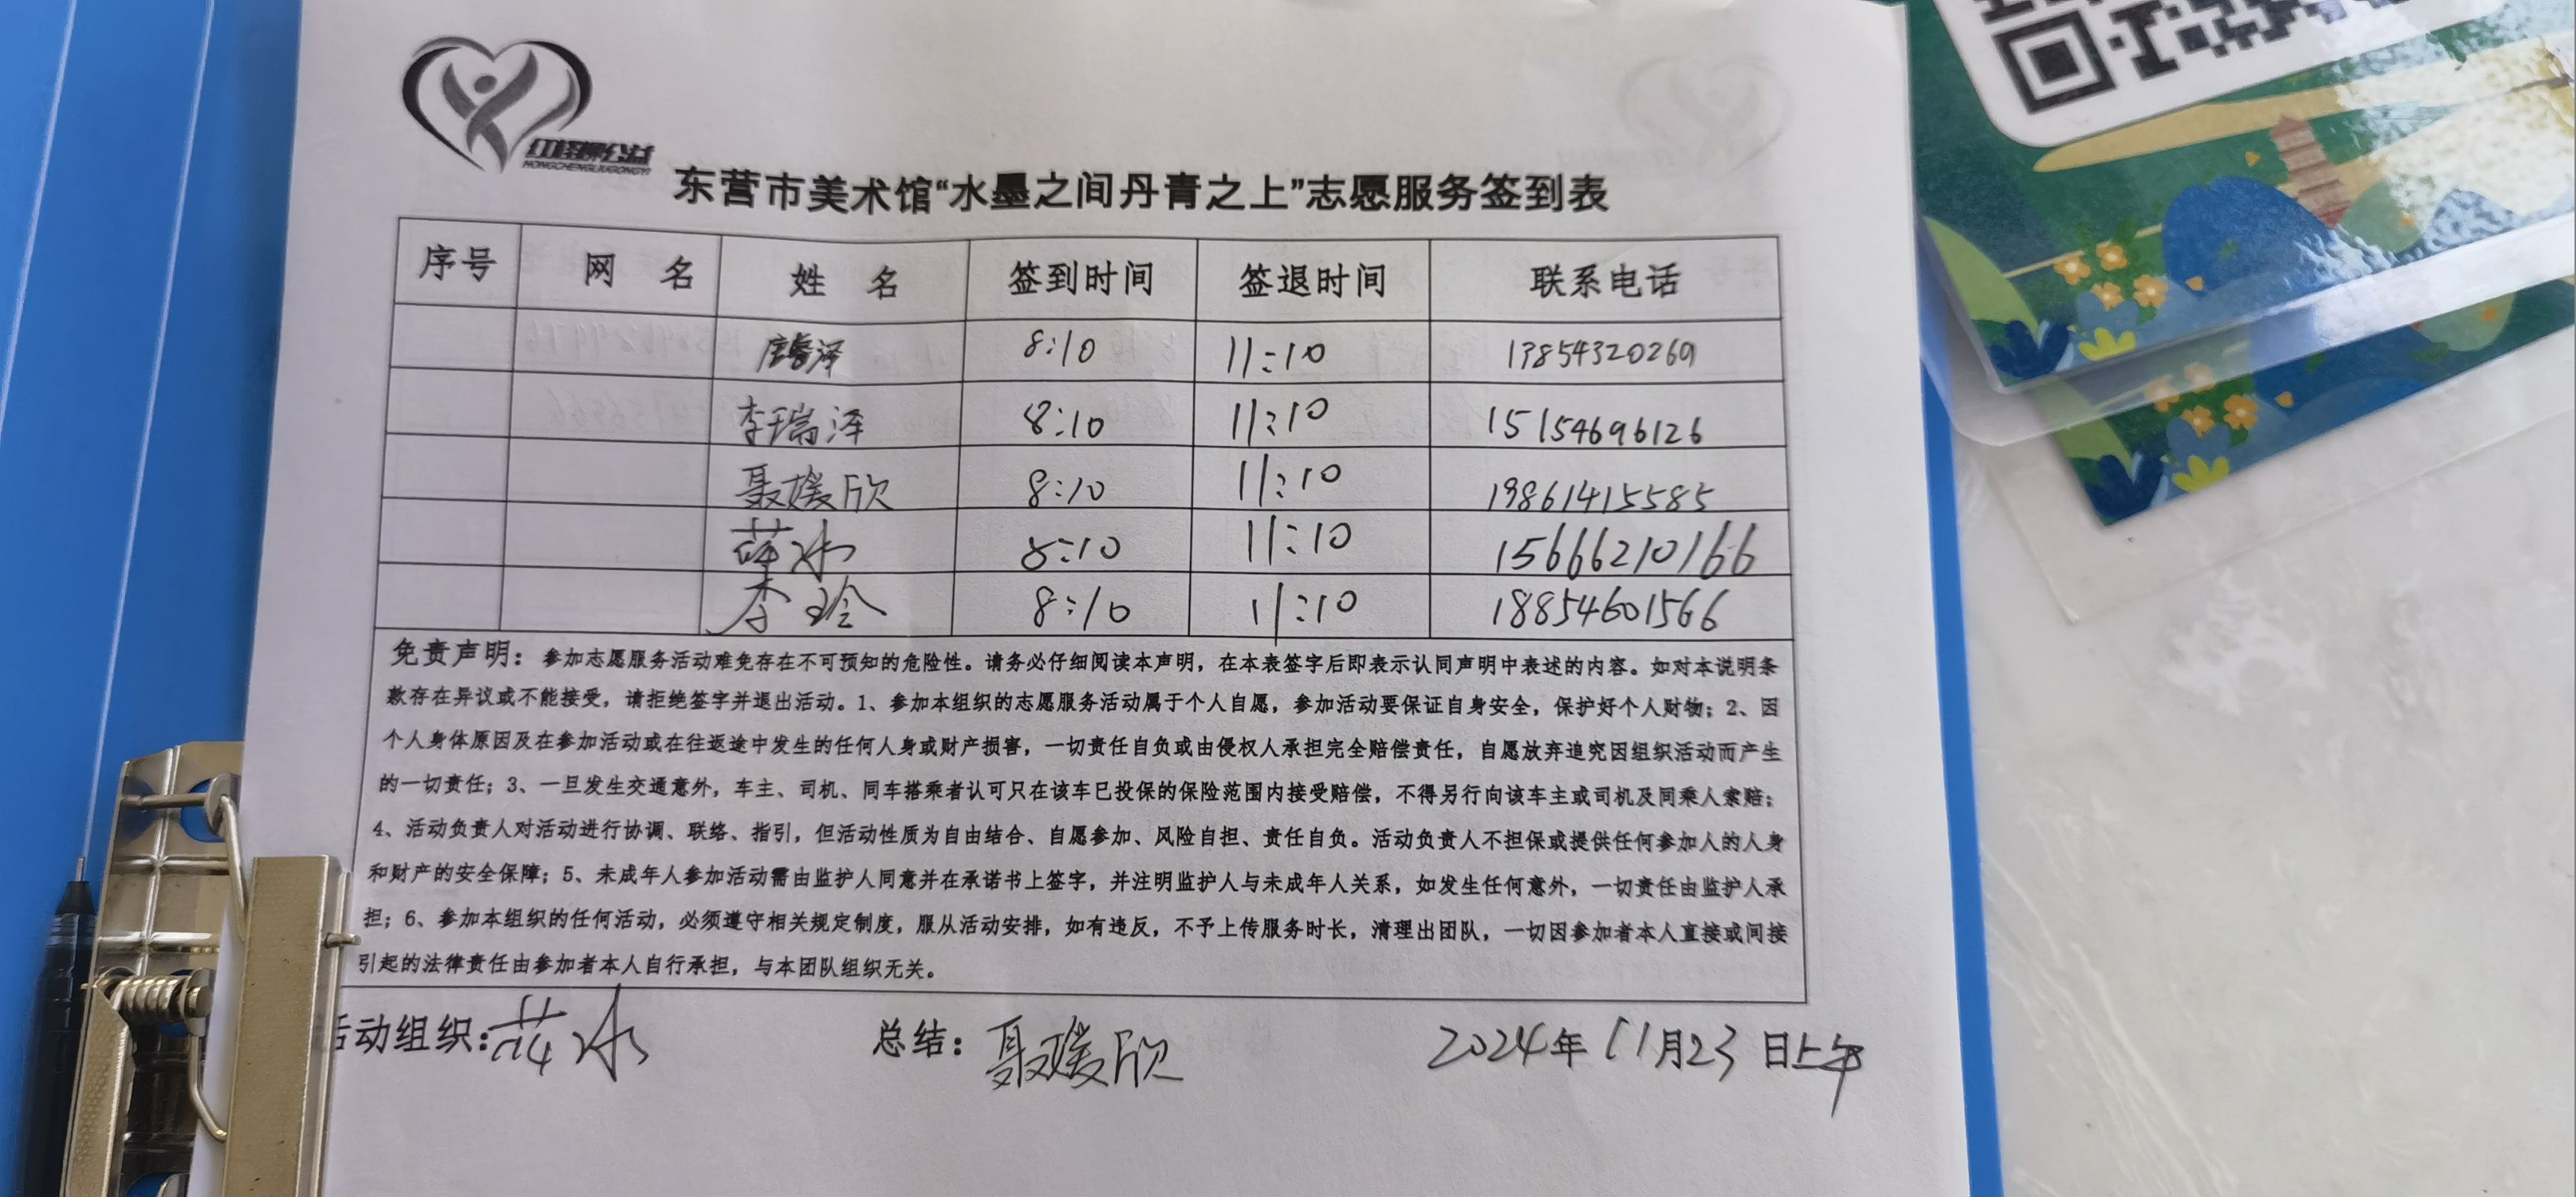 红橙柳公益
HONGCHENGLIUGONGYI
东营市美术馆“水墨之间丹青之上”志愿服务签到表
序号 网 名 姓 名 签到时间 签退时间 联系电话
8:10 11:10 13854320269
李瑞泽 8:10 11:10 15154696126
聂媛欣 8:10 11:10 19861415585
薛冰 8:10 11:10 15666210166
李玲 8:10 11:10 18854601566
免责声明：参加志愿服务活动难免存在不可预知的危险性。请务必仔细阅读本声明，在本表签字后即表示认同声明中表述的内容。如对本说明条
款存在异议或不能接受，请拒绝签字并退出活动。1、参加本组织的志愿服务活动属于个人自愿，参加活动要保证自身安全，保护好个人财物；2、因
个人身体原因及在参加活动或在往返途中发生的任何人身或财产损害，一切责任自负或由侵权人承担完全赔偿责任，自愿放弃追究因组织活动而产生
的一切责任；3、一旦发生交通意外，车主、司机、同车搭乘者认可只在该车已投保的保险范围内接受赔偿，不得另行向该车主或司机及同乘人索赔；
4、活动负责人对活动进行协调、联络、指引，但活动性质为自由结合、自愿参加、风险自担、责任自负。活动负责人不担保或提供任何参加人的人身
和财产的安全保障；5、未成年人参加活动需由监护人同意并在承诺书上签字，并注明监护人与未成年人关系，如发生任何意外，一切责任由监护人承
担；6、参加本组织的任何活动，必须遵守相关规定制度，服从活动安排，如有违反，不予上传服务时长，清理出团队，一切因参加者本人直接或间接
引起的法律责任由参加者本人自行承担，与本团队组织无关。
活动组织：薛冰 总结：聂媛欣 2024年11月23日上午